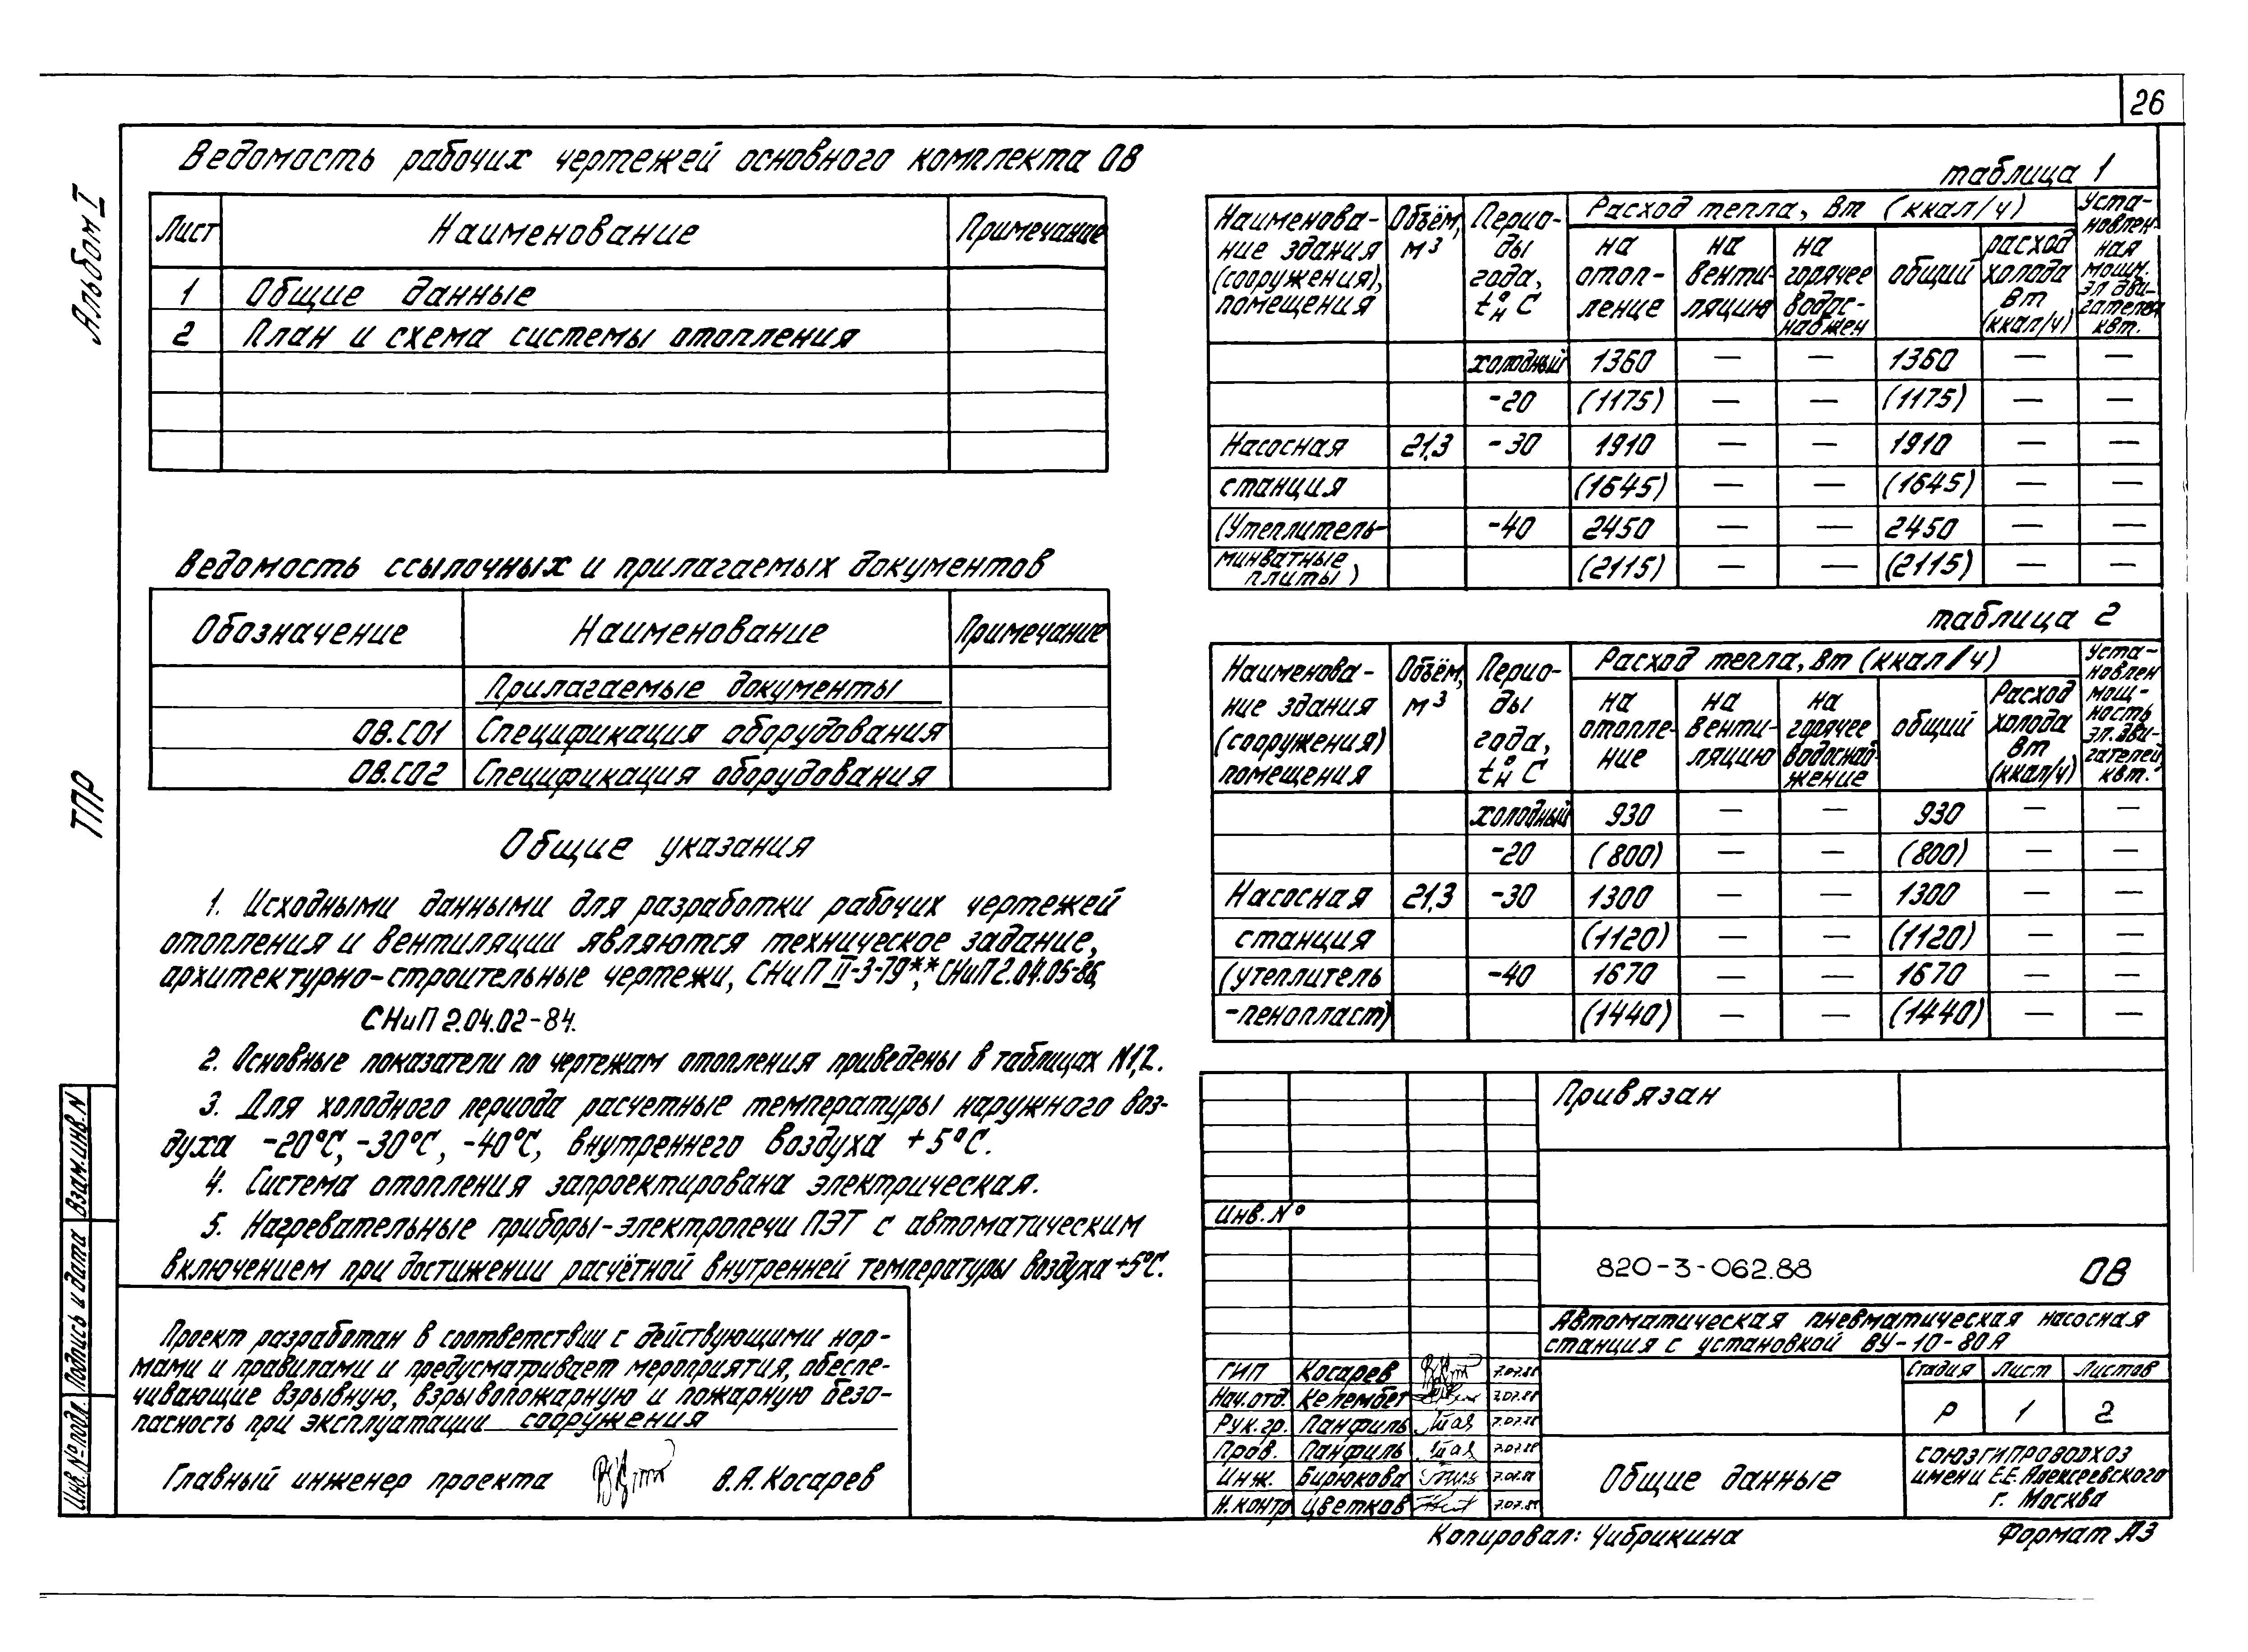 26
Альбом I
ТПР
Ведомость рабочих чертежей основного комплекта ОВ
Лист Наименование Примечание
1 Общие данные
2 План и схема системы отопления
Ведомость ссылочных и прилагаемых документов
Обозначение Наименование Примечание
Прилагаемые документы
ОВ.СО1 Спецификация оборудования
ОВ.СО2 Спецификация оборудования
Общие указания
1. Исходными данными для разработки рабочих чертежей
отопления и вентиляции являются техническое задание,
архитектурно-строительные чертежи, СНиП II-3-79**, СНиП 2.04.05-86,
СНиП 2.04.02-84.
2. Основные показатели по чертежам отопления приведены в таблицах N1,2.
3. Для холодного периода расчетные температуры наружного воз-
духа -20°С, -30°С, -40°С, внутреннего воздуха +5°С.
4. Система отопления запроектирована электрическая.
5. Нагревательные приборы-электропечи ПЭТ с автоматическим
включением при достижении расчётной внутренней температуры воздуха +5°С.
Проект разработан в соответствии с действующими нор-
мами и правилами и предусматривает мероприятия, обеспе-
чивающие взрывную, взрывопожарную и пожарную безо-
пасность при эксплуатации сооружения
Главный инженер проекта В.А.Косарев
Взам.инв.N
Подпись и дата
Инв.№подл.
таблица 1
Наименова-
ние здания
(сооружения),
помещения
Объём,
м³
Перио-
ды
года,
tн°С
Расход тепла, Вт (ккал/ч)
на
отоп-
ление
на
венти-
ляцию
на
горячее
водос-
набжен
общий
расход
холода
Вт
(ккал/ч)
Уста-
новлен-
ная
мощн.
эл дви-
гателей
квт.
холодный 1360 — — 1360 — —
-20 (1175) — — (1175) — —
Насосная 21,3 -30 1910 — — 1910 — —
станция (1645) — — (1645) — —
(Утеплитель- -40 2450 — — 2450 — —
минватные
плиты) (2115) — — (2115) — —
таблица 2
Наименова-
ние здания
(сооружения)
помещения
Объём,
м³
Перио-
ды
года,
tн°С
Расход тепла, Вт (ккал/ч)
на
отопле-
ние
на
венти-
ляцию
на
горячее
водоснаб-
жение
общий
Расход
холода
Вт
(ккал/ч)
Уста-
новлен
мощ-
ность
эл.дви-
гателей,
квт.
холодный 930 — — 930 — —
-20 (800) — — (800) — —
Насосная 21,3 -30 1300 — — 1300 — —
станция (1120) — — (1120) — —
(утеплитель -40 1670 — — 1670 — —
-пенопласт) (1440) — — (1440) — —
Привязан
Инв.№
820-3-062.88 ОВ
Автоматическая пневматическая насосная
станция с установкой ВУ-10-80А
ГИП Косарев 7.07.88
Нач.отд. Келембет 7.07.88
Рук.гр. Панфиль 7.07.88
Пров. Панфиль 7.07.88
Инж. Бирюкова
Н.контр Цветков 7.07.88
Стадия Лист Листов
Р 1 2
Общие данные
СОЮЗГИПРОВОДХОЗ
имени Е.Е.Алексеевского
г. Москва
Копировал: Чибрикина Формат А3